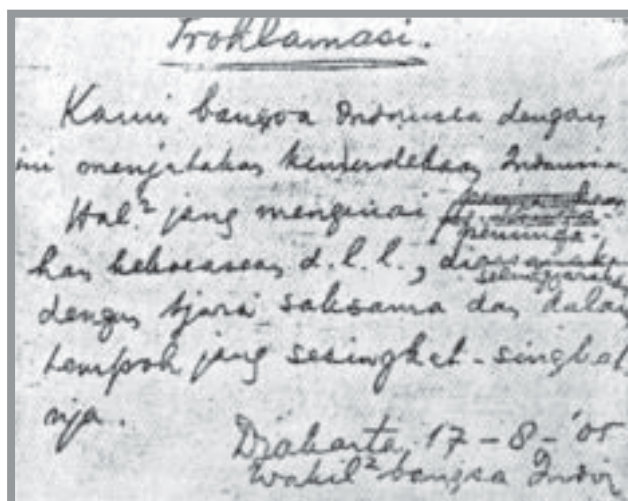 Proklamasi.
Kami bangsa Indonesia dengan
ini menjatakan kemerdekaan Indonesia.
Hal² jang mengenai
pemindahan
kekoeasaan d.l.l.,
diselenggarakan
dengan tjara saksama dan dalam
tempoh jang sesingkat-singkat
nja.
Djakarta, 17-8-'05
Wakil² bangsa Indon